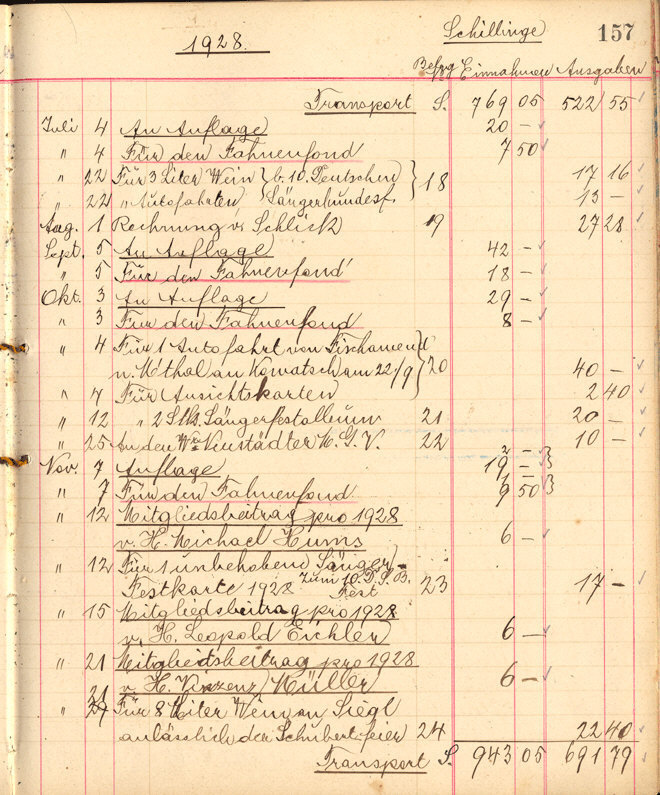 1928. Schillinge 157
Belg Einnahmen Ausgaben
Transport S. 769 05 522 55
Juli 4 An Auflage 20 —
" 4 Für den Fahnenfond 7 50
" 22 Für 3 Liter Wein b. 10. Deutschen 18 17 16
" 22 " Autofahrten Sängerbundesf. 13 —
Aug. 1 Rechnung v. Schlick 19 27 28
Sept. 5 An Auflage 42 —
" 5 Für den Fahnenfond 18 —
Okt. 3 An Auflage 29 —
" 3 Für den Fahnenfond 8 —
" 4 Für 1 Autofahrt von Fischamend
n. Kowatsch am 22/9 20 40 —
" 4 Für Ansichtskarten 2 40
" 12 " 2 Stk. Sängerfestalbum 21 20 —
" 25 An den Wr. Neustädter M. G. V. 22 10 —
Nov. 7 Auflage 19 —
" 7 Für den Fahnenfond 9 50
" 12 Mitgliedsbeitrag pro 1928
v. H. Michael Hums 6 —
" 12 Für 1 unbehobene Sänger-
Festkarte 1928 zum 10. D. S. B. Fest 23 17 —
" 15 Mitgliedsbeitrag pro 1928
v. H. Leopold Eichler 6 —
" 21 Mitgliedsbeitrag pro 1928
v. H. Vinzenz Müller 6 —
" 21 Für 8 Liter Wein an Siegl
anlässlich der Schubertfeier 24 22 40
Transport S. 943 05 691 79